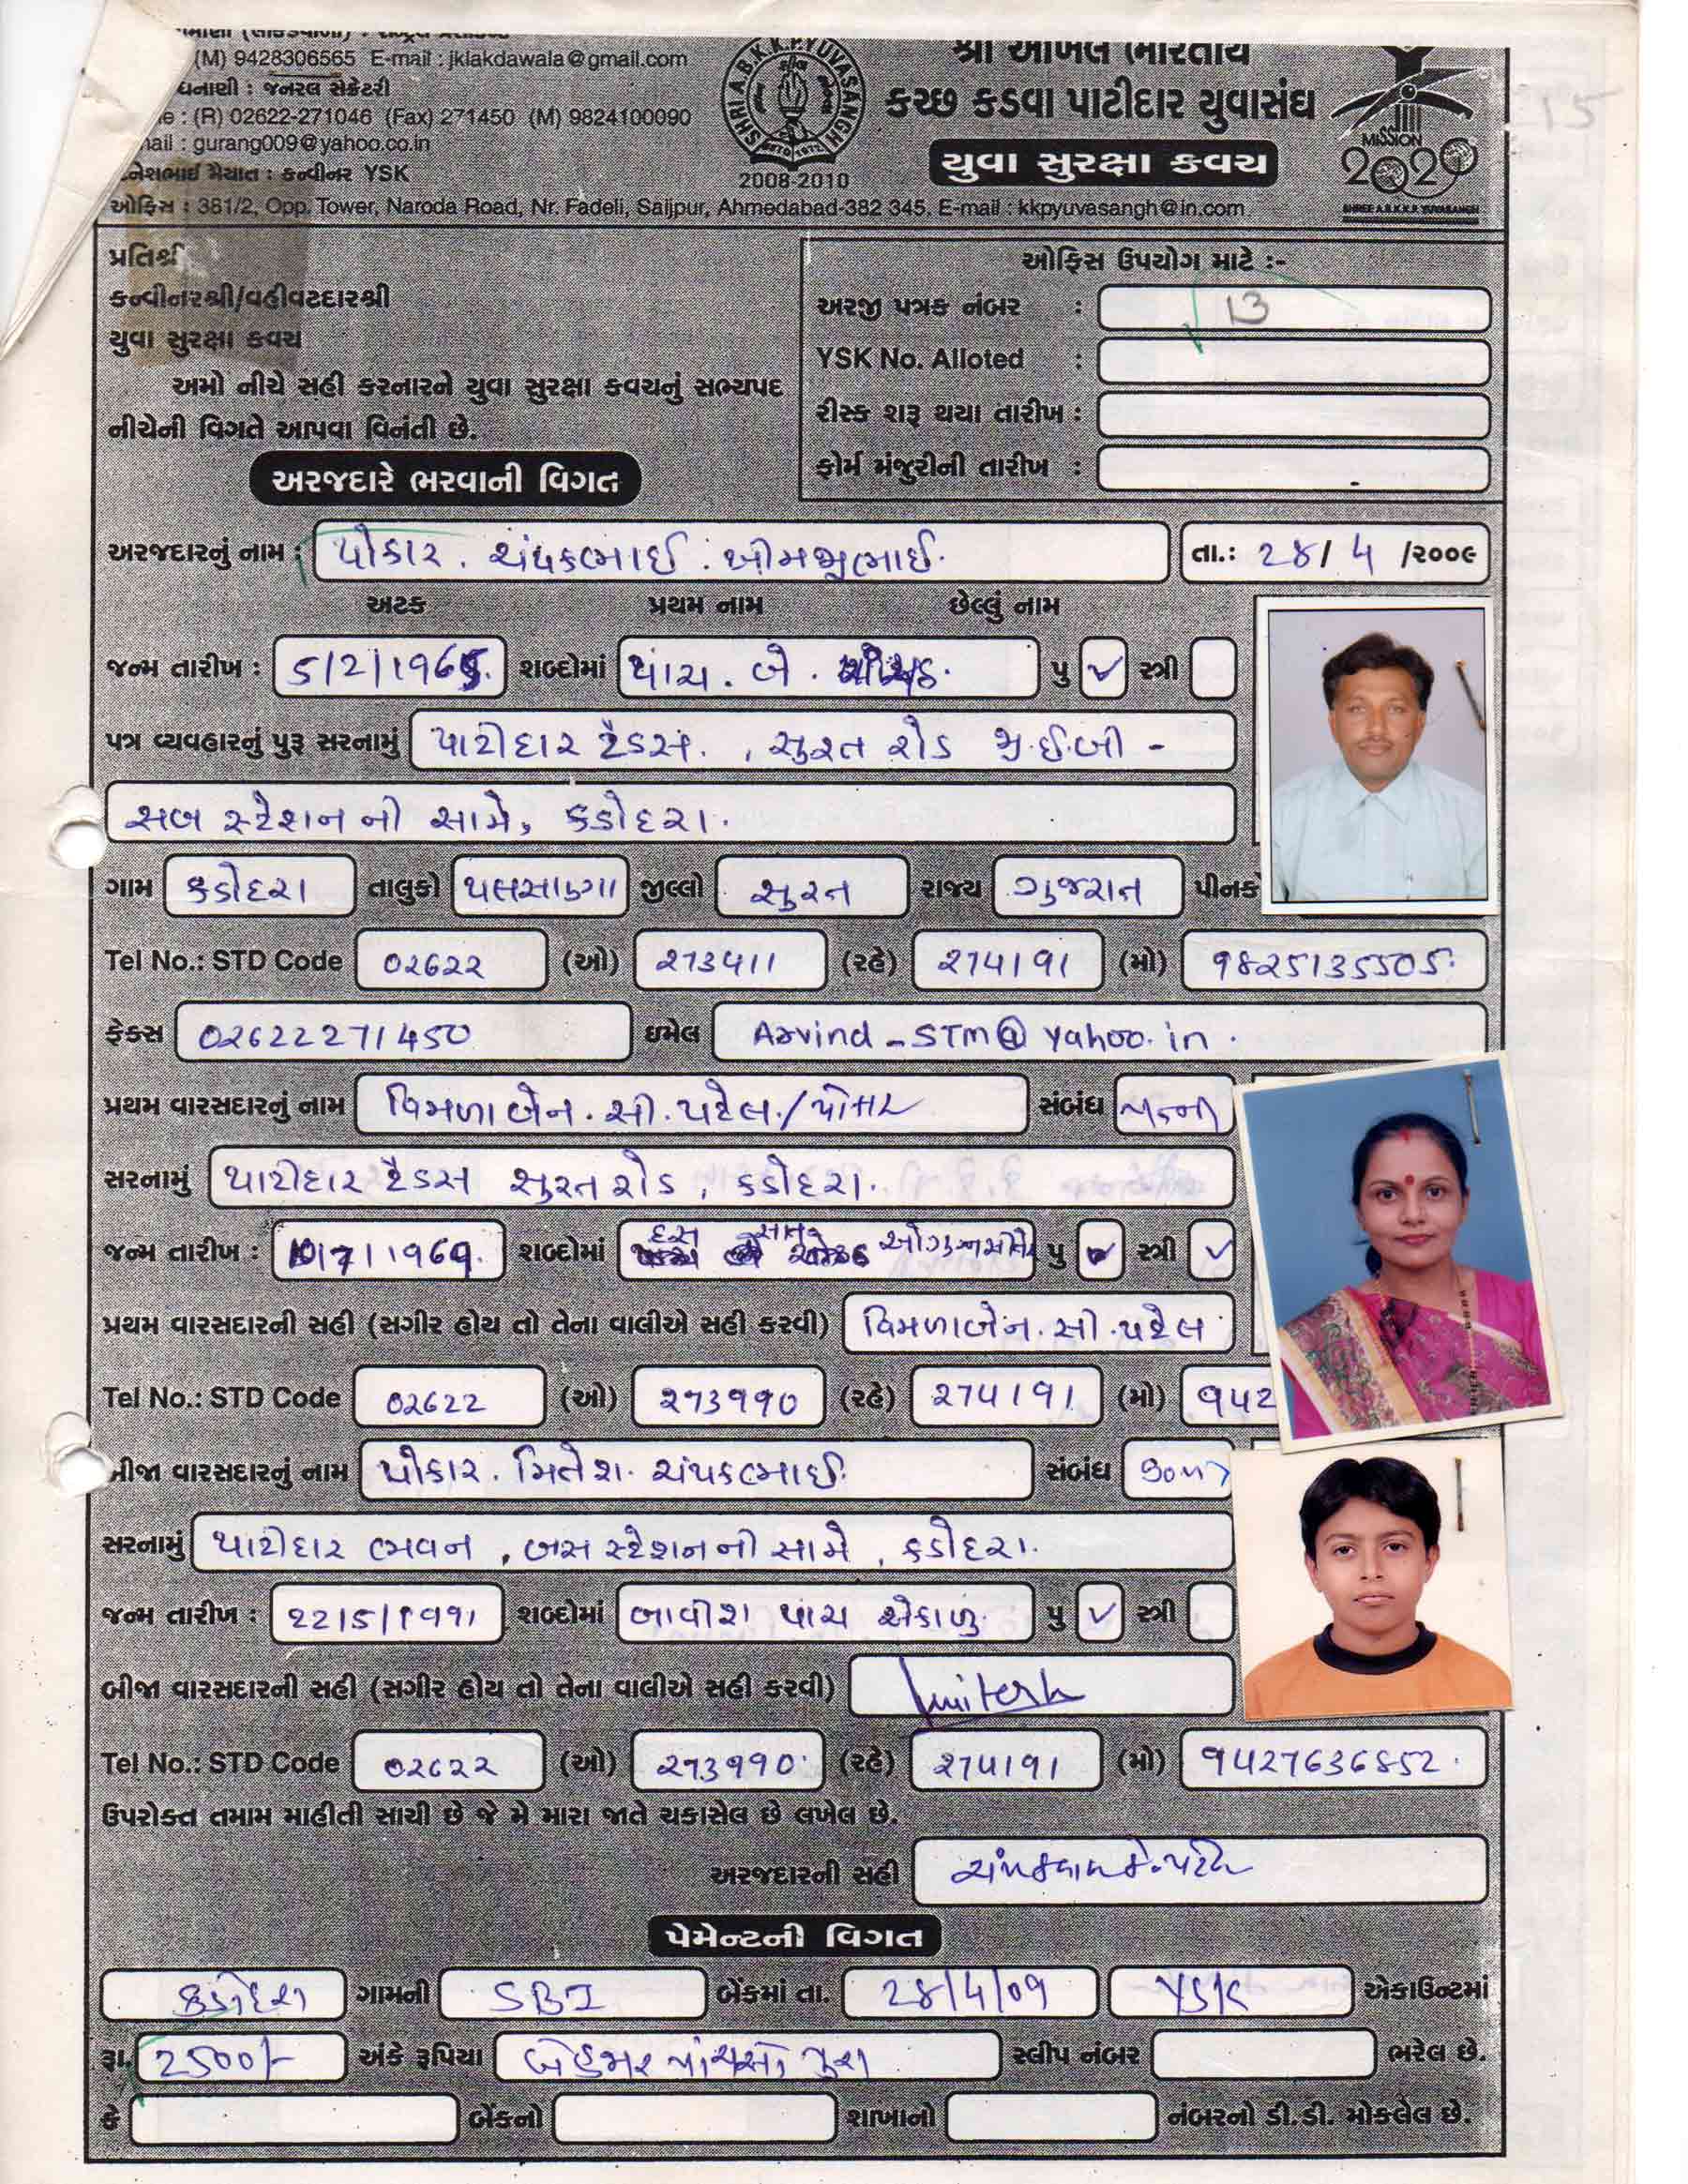 (M) 9428306565 E-mail : jklakdawala@gmail.com
ધનાણી : જનરલ સેક્રેટરી
(R) 02622-271046 (Fax) 271450 (M) 9824100090
ail : gurang009@yahoo.co.in
કન્વીનર YSK
ઓફિસ : 381/2, Opp. Tower, Naroda Road, Nr. Fadeli, Saijpur, Ahmedabad-382 345. E-mail : kkpyuvasangh@in.com
SHRI A.B.K.K.P. YUVASANGH
2008-2010
શ્રી અખિલ ભારતીય
કચ્છ કડવા પાટીદાર યુવાસંઘ
યુવા સુરક્ષા કવચ
MISSION
2020
SHREE A.B.K.K.P. YUVASANGH
15
પ્રતિશ્રી
કન્વીનરશ્રી/વહીવટદારશ્રી
યુવા સુરક્ષા કવચ
અમો નીચે સહી કરનારને યુવા સુરક્ષા કવચનું સભ્યપદ
નીચેની વિગતે આપવા વિનંતી છે.
ઓફિસ ઉપયોગ માટે :-
અરજી પત્રક નંબર : 13
YSK No. Alloted :
રીસ્ક શરૂ થયા તારીખ :
ફોર્મ મંજુરીની તારીખ :
અરજદારે ભરવાની વિગત
અરજદારનું નામ : પોકાર . ચંપકભાઈ . ખીમજીભાઈ. તા.: ૨૪/ 4 /૨૦૦૯
અટક પ્રથમ નામ છેલ્લું નામ
જન્મ તારીખ : 5/2/1965. શબ્દોમાં પાંચ . બે . પુ ✓ સ્ત્રી
પત્ર વ્યવહારનું પુરૂ સરનામું પાટીદાર ટ્રેડર્સ. , સુરત રોડ જી.ઈ.બી -
સબ સ્ટેશન ની સામે, કડોદરા.
ગામ કડોદરા તાલુકો પલસાણા જીલ્લો સુરત રાજ્ય ગુજરાત પીનક
Tel No.: STD Code 02622 (ઓ) ૨૭૩૫૧૧ (રહે) ૨૭૪૧૯૧ (મો) 9825135505.
ફેક્સ 02622271450 ઇમેલ Arvind_STM@yahoo.in .
પ્રથમ વારસદારનું નામ વિમળાબેન . સી . પટેલ . / પોકાર સંબંધ પત્ની
સરનામું પાટીદાર ટ્રેડર્સ સુરત રોડ , કડોદરા.
જન્મ તારીખ : 10/7/1969. શબ્દોમાં દસ સાત પુ સ્ત્રી ✓
પ્રથમ વારસદારની સહી (સગીર હોય તો તેના વાલીએ સહી કરવી) વિમળાબેન . સી . પટેલ
Tel No.: STD Code 02622 (ઓ) ૨૭૩૯૯૦ (રહે) ૨૭૪૧૯૧ (મો) 942
બીજા વારસદારનું નામ પોકાર . મિતેશ . ચંપકભાઈ. સંબંધ
સરનામું પાટીદાર ભવન , બસ સ્ટેશન ની સામે , કડોદરા.
જન્મ તારીખ : 22/5/1991 શબ્દોમાં બાવીશ પાંચ એકાણું. પુ ✓ સ્ત્રી
બીજા વારસદારની સહી (સગીર હોય તો તેના વાલીએ સહી કરવી) Mitesh
Tel No.: STD Code 02622 (ઓ) ૨૭૩૯૯૦ (રહે) ૨૭૪૧૯૧ (મો) 9427636852 .
ઉપરોક્ત તમામ માહીતી સાચી છે જે મે મારા જાતે ચકાસેલ છે લખેલ છે.
અરજદારની સહી
પેમેન્ટની વિગત
કડોદરા ગામની SBI બેંકમાં તા. 28/4/09 YSK એકાઉન્ટમાં
રૂા. 2500/- અંકે રૂપિયા બે હજાર પાંચસો પુરા સ્લીપ નંબર ભરેલ છે.
કે બેંકનો શાખાનો નંબરનો ડી.ડી. મોકલેલ છે.